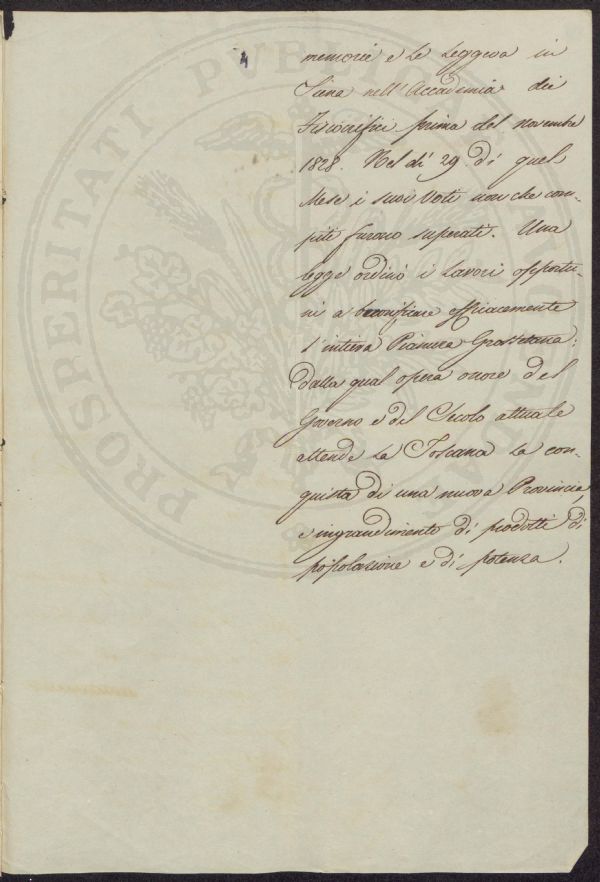 memorie e le leggeva in
Siena nell'Accademia dei
Fisiocritici prima del novembre
1828. Nel dì 29 di quel
Mese i suoi Voti non che com-
piti furono superati. Una
legge ordinò i lavori opportu-
ni a bonificare efficacemente
l'intiera Pianura Grossetana:
dalla qual opera onore del
Governo e del Secolo attuale
attende la Toscana la con-
quista di una nuova Provincia,
e ingrandimento di prodotti di
popolazione e di potenza.
PROSPERITATI PVBLI